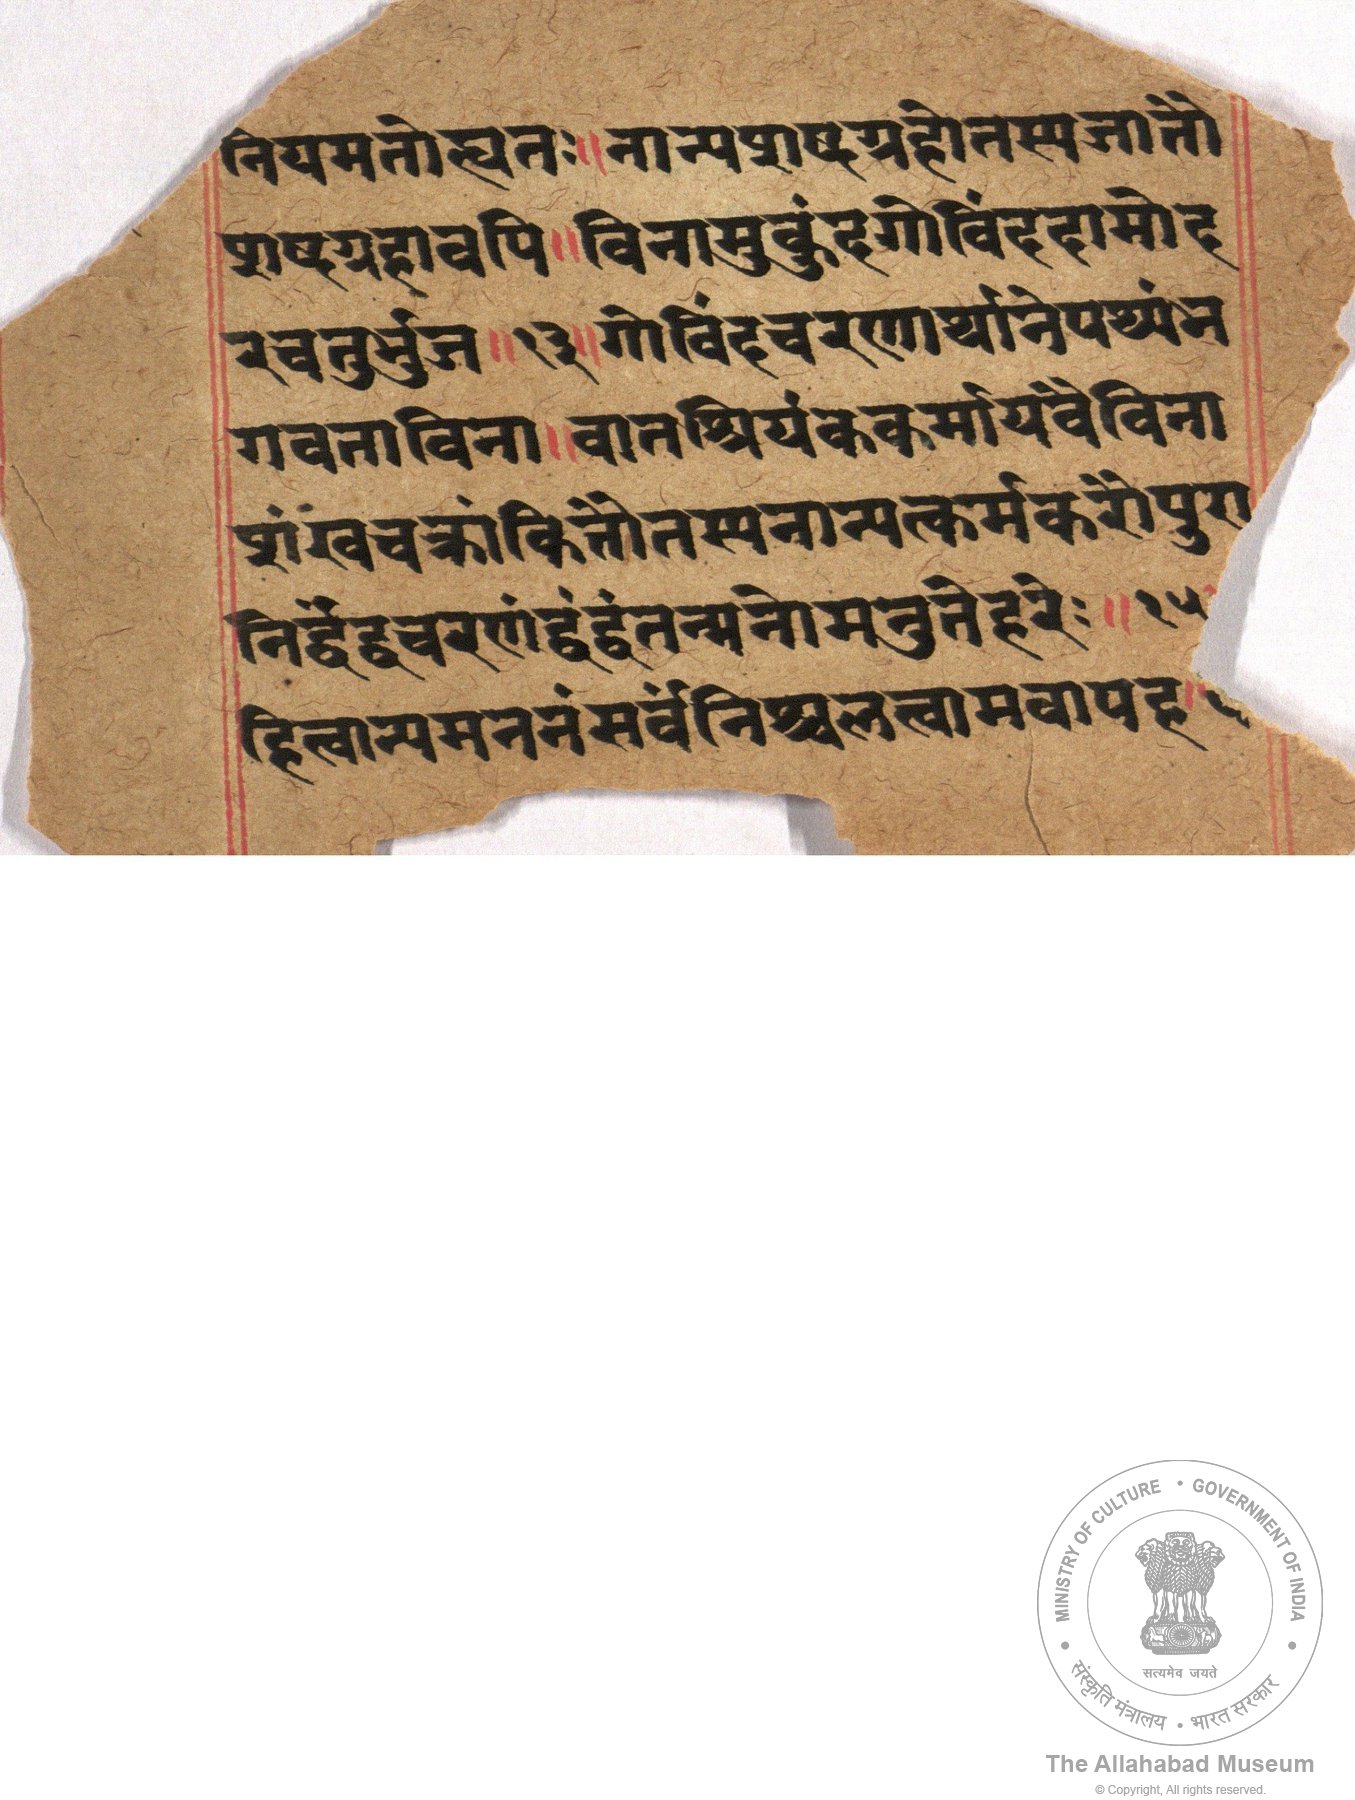 नियमतोह्यतः ॥ नान्यशब्दग्रहौतस्यजातौ
शब्दग्रहावपि ॥ विनामुकुंदगोविंददामोद
रचतुर्भुज ॥ १३ ॥ गोविंदचरणार्थानेपथ्यंभ
गवताविना ॥ वानश्रियंककर्मायंवैविना
शंखचक्रांकितौतस्यनान्यत्कर्मकरौपुरा
निर्द्वंद्वचरणंद्वंद्वंतन्मनोमनुतेहरेः ॥ १५
हित्वान्यमननंसर्वंनिश्चलत्वामवापह ॥
MINISTRY OF CULTURE • GOVERNMENT OF INDIA
सत्यमेव जयते
संस्कृति मंत्रालय • भारत सरकार
The Allahabad Museum
© Copyright, All rights reserved.